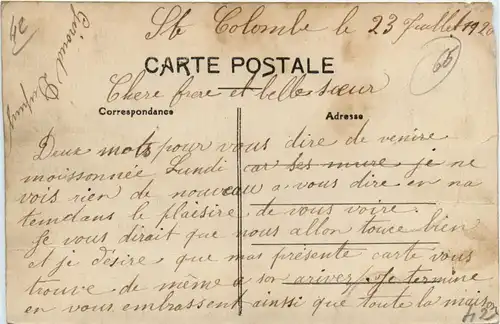 Ste Colombe le 23 Juillet 1920
CARTE POSTALE
Chere frere et belle sœur
Correspondance
Adresse
Deux mots pour vous dire de venire
moissonnée Lundi car ses mure je ne
vois rien de nouveau a vous dire en na
temdans le plaisire de vous voire.
Je vous dirait que nous allon touce bien
et je désire que mas présente carte vous
trouve de même a son arivez. Je termine
en vous embrassent ainsi que toute la maison
Giroud
24
65